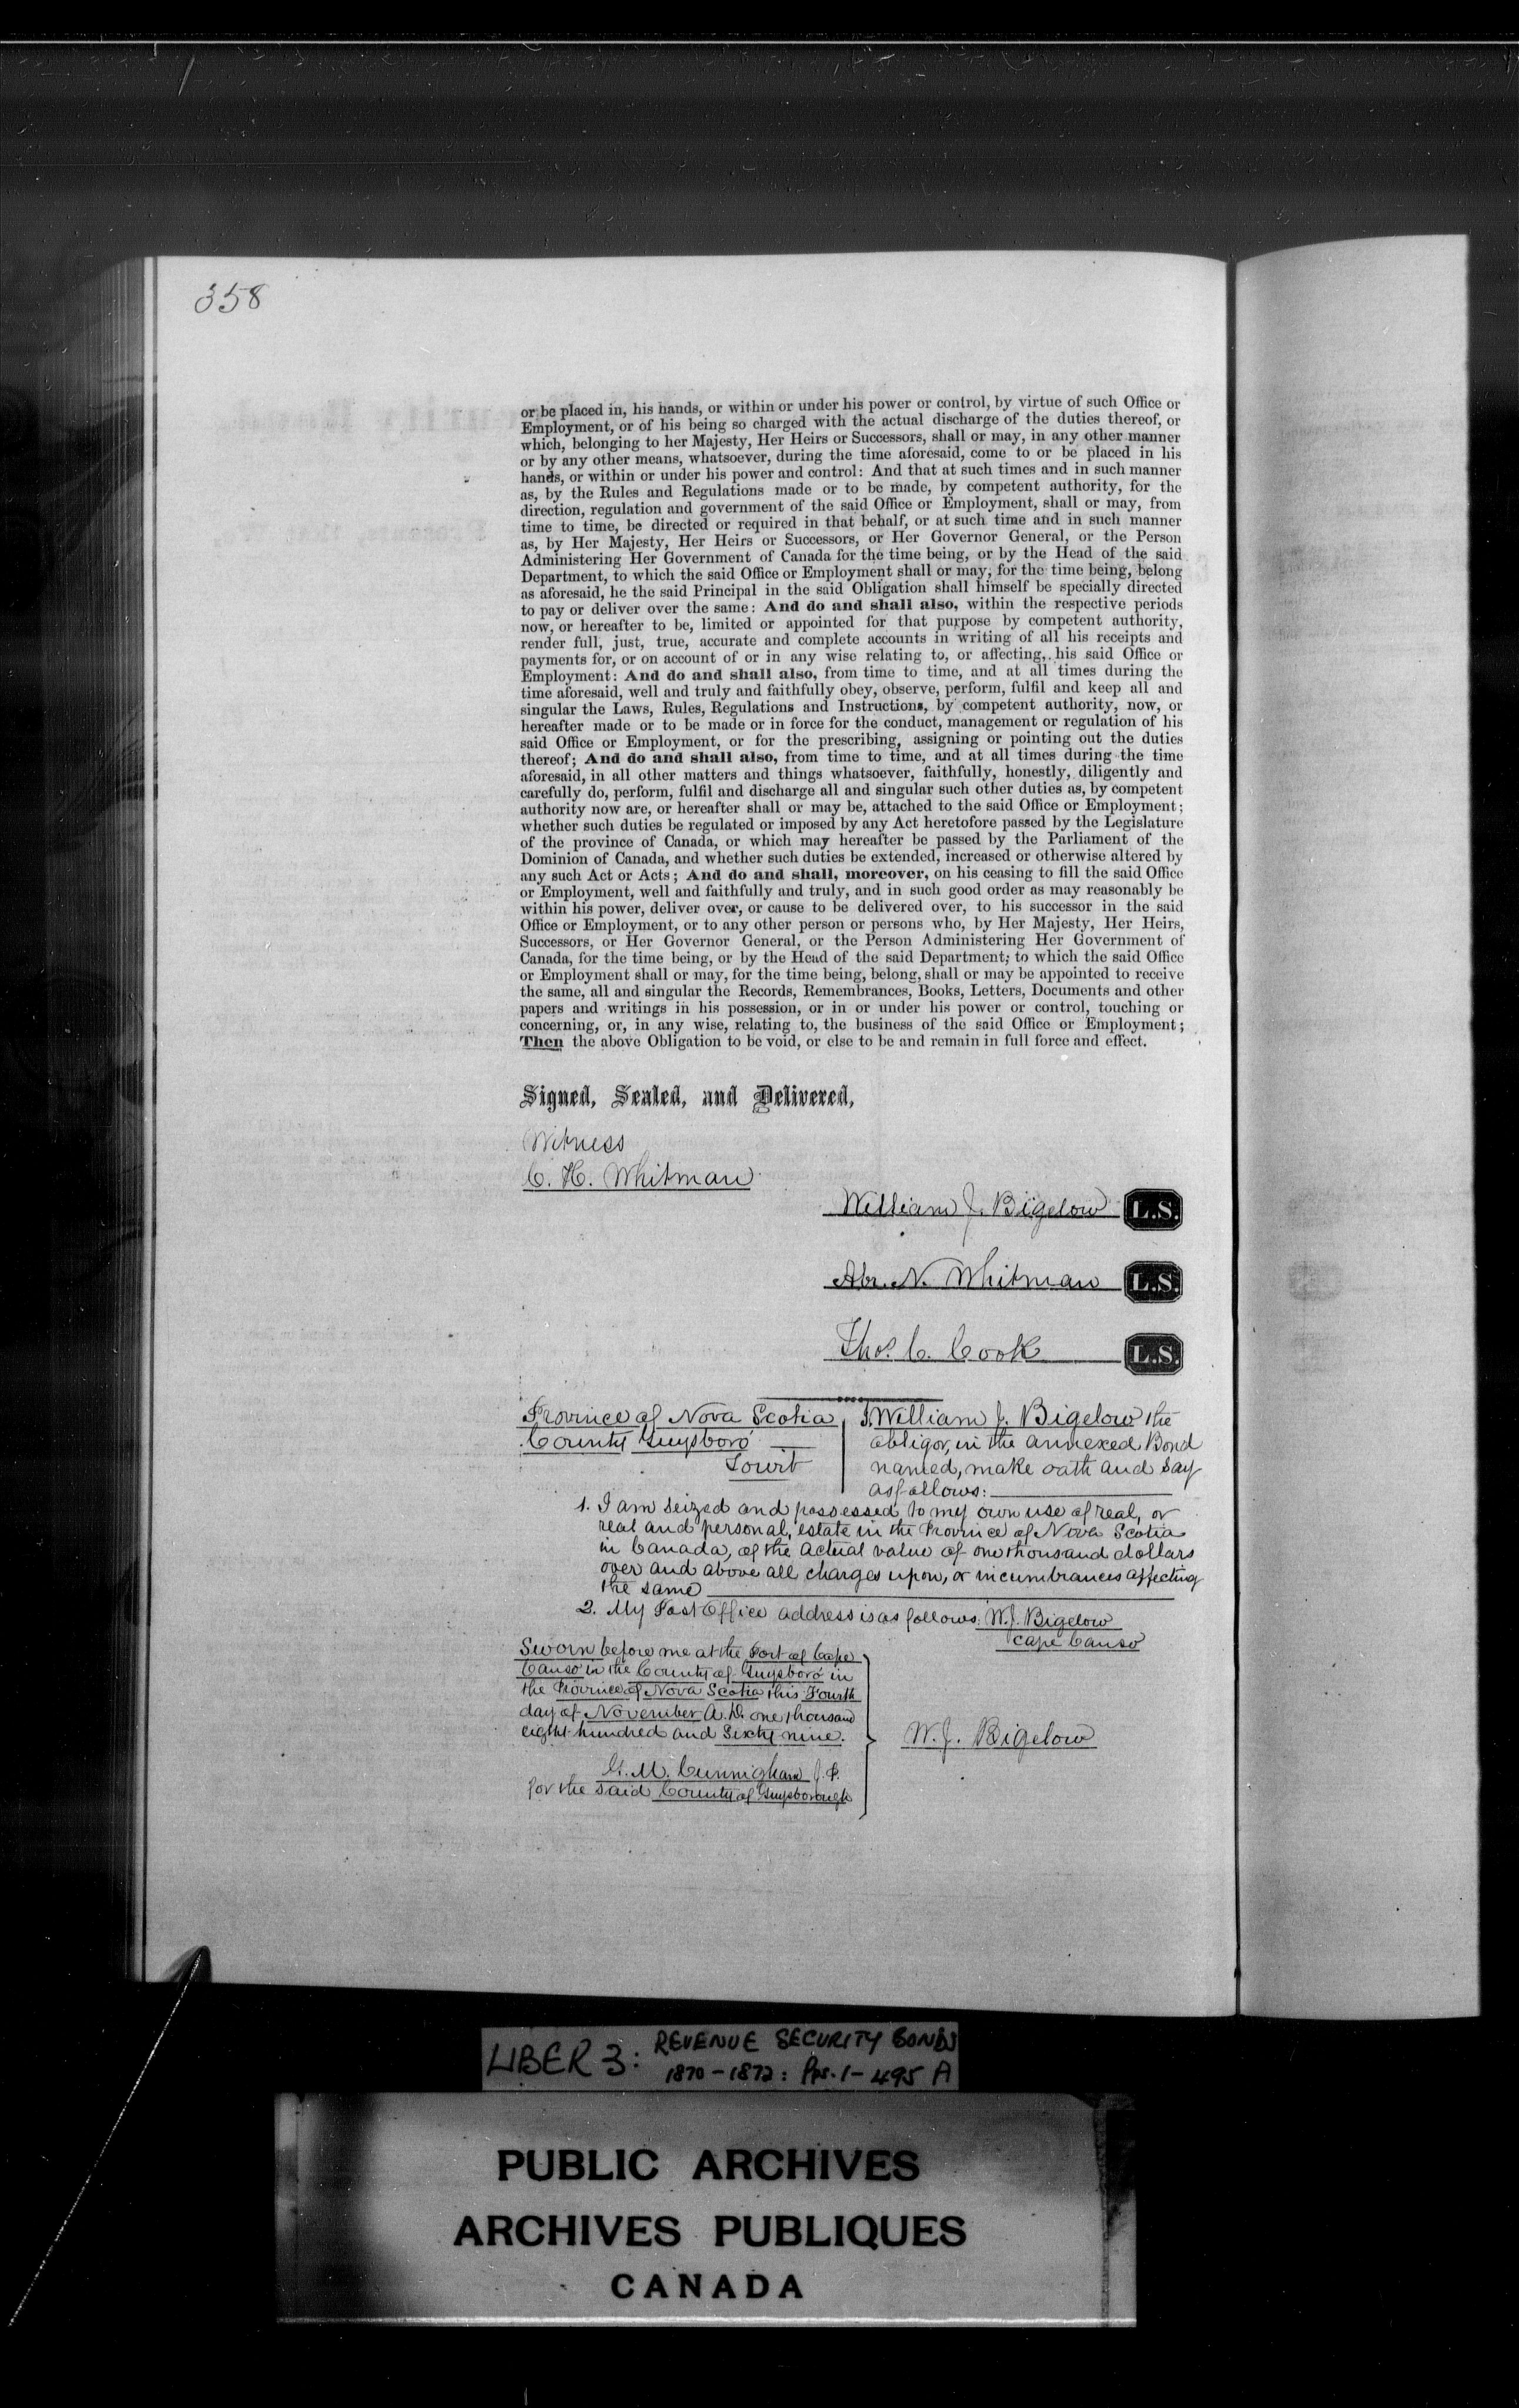 358
or be placed in, his hands, or within or under his power or control, by virtue of such Office or
Employment, or of his being so charged with the actual discharge of the duties thereof, or
which, belonging to her Majesty, Her Heirs or Successors, shall or may, in any other manner
or by any other means, whatsoever, during the time aforesaid, come to or be placed in his
hands, or within or under his power and control: And that at such times and in such manner
as, by the Rules and Regulations made or to be made, by competent authority, for the
direction, regulation and government of the said Office or Employment, shall or may, from
time to time, be directed or required in that behalf, or at such time and in such manner
as, by Her Majesty, Her Heirs or Successors, or Her Governor General, or the Person
Administering Her Government of Canada for the time being, or by the Head of the said
Department, to which the said Office or Employment shall or may, for the time being, belong
as aforesaid, he the said Principal in the said Obligation shall himself be specially directed
to pay or deliver over the same: And do and shall also, within the respective periods
now, or hereafter to be, limited or appointed for that purpose by competent authority,
render full, just, true, accurate and complete accounts in writing of all his receipts and
payments for, or on account of or in any wise relating to, or affecting, his said Office or
Employment: And do and shall also, from time to time, and at all times during the
time aforesaid, well and truly and faithfully obey, observe, perform, fulfil and keep all and
singular the Laws, Rules, Regulations and Instructions, by competent authority, now, or
hereafter made or to be made or in force for the conduct, management or regulation of his
said Office or Employment, or for the prescribing, assigning or pointing out the duties
thereof; And do and shall also, from time to time, and at all times during the time
aforesaid, in all other matters and things whatsoever, faithfully, honestly, diligently and
carefully do, perform, fulfil and discharge all and singular such other duties as, by competent
authority now are, or hereafter shall or may be, attached to the said Office or Employment;
whether such duties be regulated or imposed by any Act heretofore passed by the Legislature
of the province of Canada, or which may hereafter be passed by the Parliament of the
Dominion of Canada, and whether such duties be extended, increased or otherwise altered by
any such Act or Acts; And do and shall, moreover, on his ceasing to fill the said Office
or Employment, well and faithfully and truly, and in such good order as may reasonably be
within his power, deliver over, or cause to be delivered over, to his successor in the said
Office or Employment, or to any other person or persons who, by Her Majesty, Her Heirs,
Successors, or Her Governor General, or the Person Administering Her Government of
Canada, for the time being, or by the Head of the said Department, to which the said Office
or Employment shall or may, for the time being, belong, shall or may be appointed to receive
the same, all and singular the Records, Remembrances, Books, Letters, Documents and other
papers and writings in his possession, or in or under his power or control, touching or
concerning, or, in any wise, relating to, the business of the said Office or Employment;
Then the above Obligation to be void, or else to be and remain in full force and effect.
Signed, Sealed, and Delivered,
Witness
C. H. Whitman
William J. Bigelow L.S.
Abr. N. Whitman L.S.
Thos. C. Cook L.S.
Province of Nova Scotia
County Guysboro
Towit
I William J. Bigelow the
obligor, in the annexed Bond
named, make oath and say
as follows:
1. I am seized and possessed to my own use of real, or
real and personal, estate in the Province of Nova Scotia
in Canada, of the actual value of one thousand dollars
over and above all charges upon, or incumbrances affecting
the same
2. My Post Office address is as follows: W. J. Bigelow
Cape Canso
Sworn before me at the Port of Cape
Canso in the County of Guysboro in
the Province of Nova Scotia this Fourth
day of November A. D. one thousand
eight hundred and Sixty nine.
W. J. Bigelow
G. M. Cunnigham J. P.
for the said County of Guysborough
LIBER 3: REVENUE SECURITY BONDS
1870-1872: Pps. 1-495 A
PUBLIC ARCHIVES
ARCHIVES PUBLIQUES
CANADA